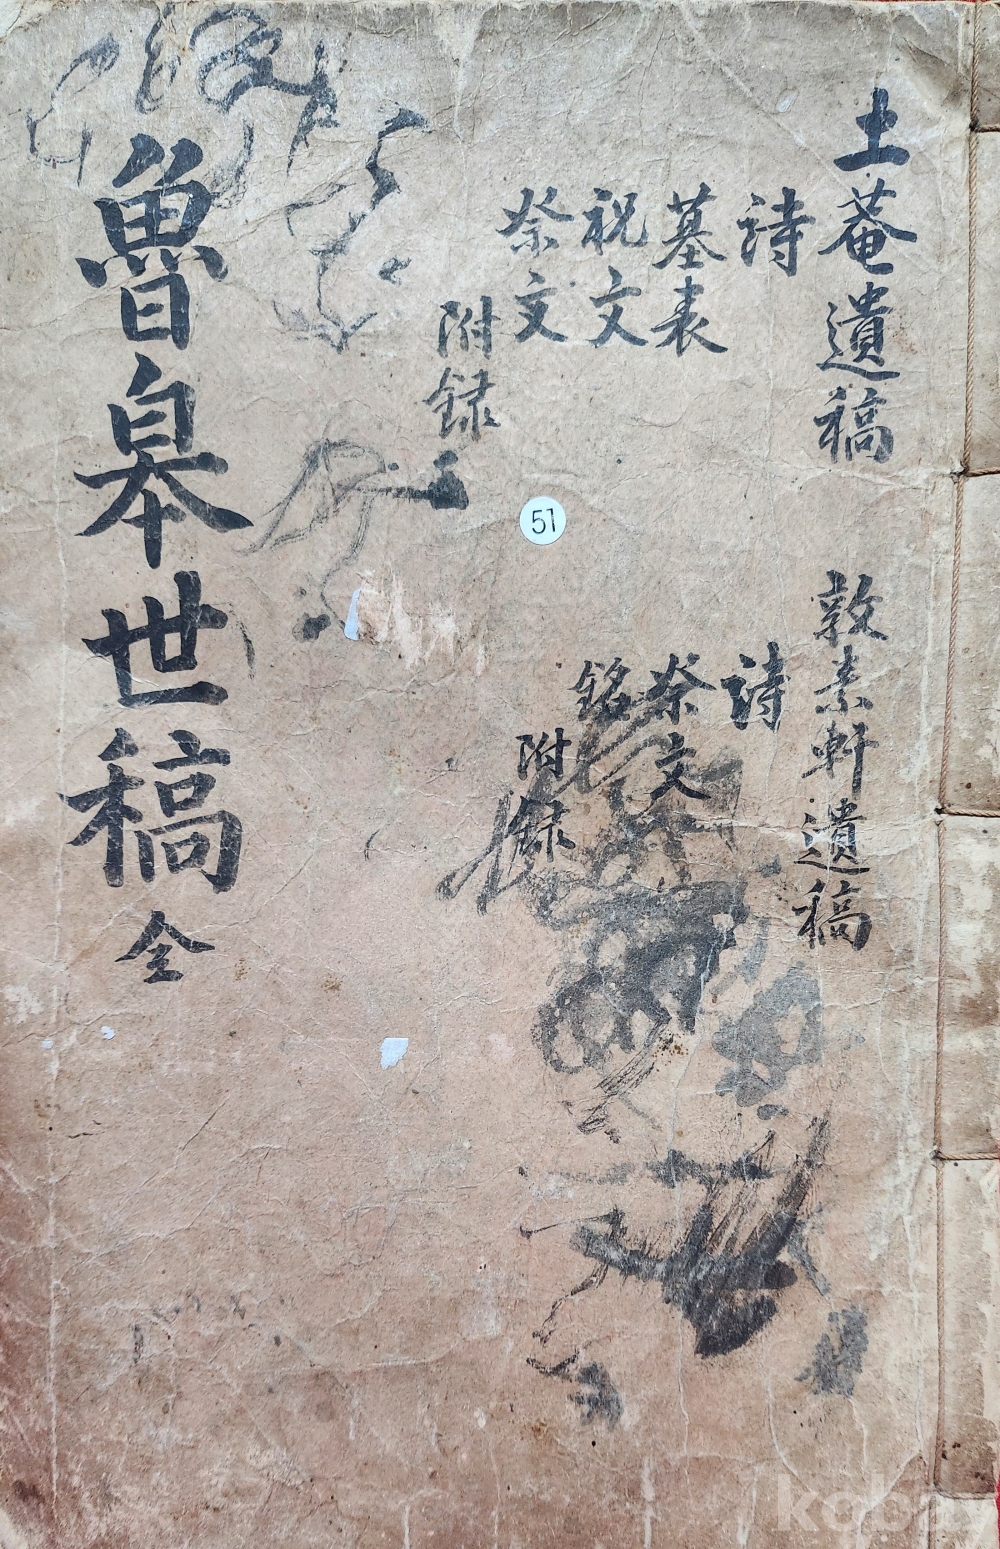 土菴遺稿
詩
墓表
祝文
祭文
附録
敦素軒遺稿
詩
祭文
銘
附録
魯皐世稿 全
51
kobay